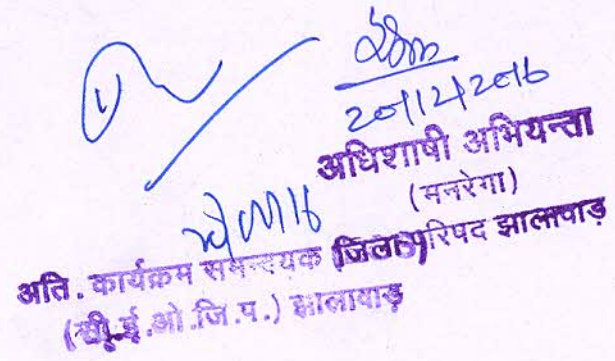 20/12/2016
अधिशाषी अभियन्ता
(मनरेगा)
जिला परिषद झालावाड़
अति. कार्यक्रम समन्वयक
(सी.ई.ओ.जि.प.) झालावाड़